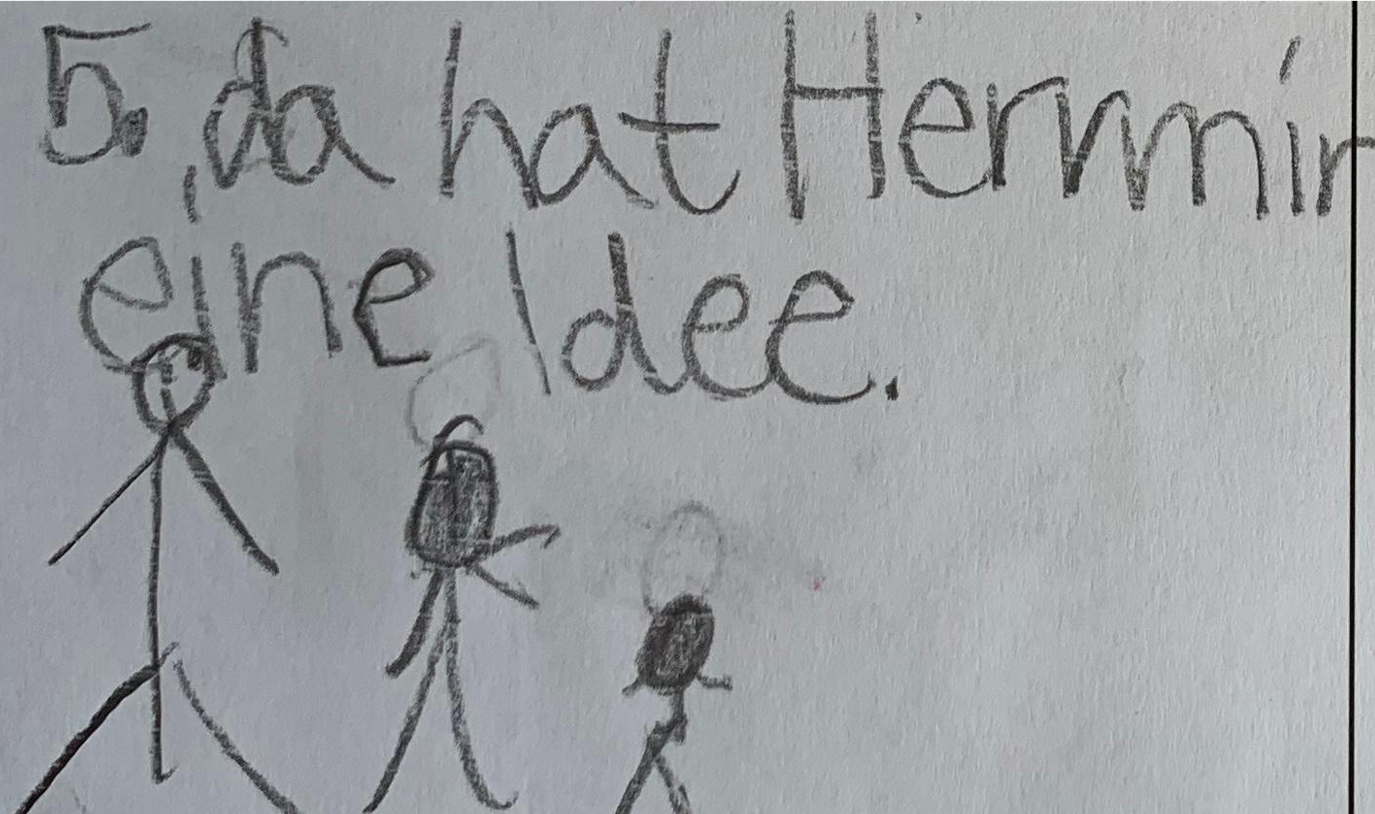 5. da hat Hermin
eine Idee.